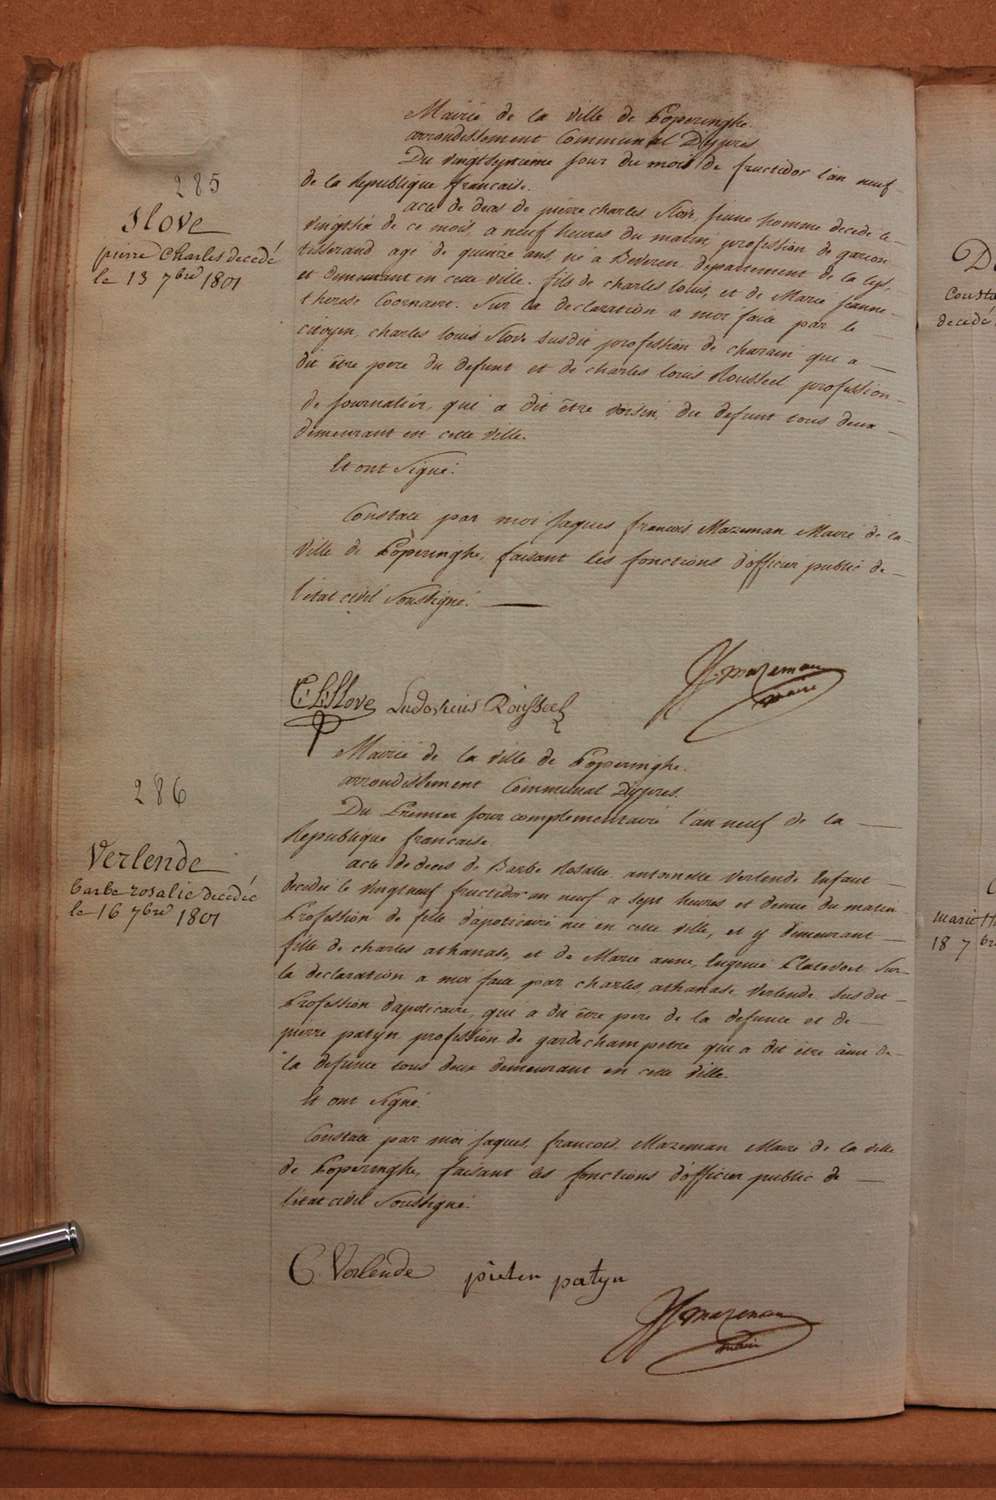 285
Slove
pierre Charles decedé
le 13 7bre 1801
Mairie de la ville de Poperinghe.
arrondissement Communal Dypres
Du vingtseptieme jour du mois de fructidor l'an neuf
de la Republique francaise.
acte de deces de pierre charles Slove, jeune homme decede le
vingtsix de ce mois, a neuf heures du matin, profession de garcon
tisserand agé de quinze ans, né a Beveren departement de la Lys,
et demeurant en cette ville. fils de charles louis, et de Marie jeanne
therese Coornaert. Sur la declaration a moi faite par le
citoyen, charles louis Slove susdit profession de qui a
dit être pere du defunt et de charles louis Roussel profession
de journalier, qui a dit être voisin du defunt tous deux
demeurant en cette ville.
Et ont Signé.
Constaté par moi jaques francois Mazeman Maire de la
ville de Poperinghe, faisant les fonctions d'officier public de
l'état civil Soussigné.
C: L: Slove Ludovicus Roussel
J. Mazeman
maire
286
Verlende
barbe rosalie decedée
le 16 7bre 1801
Mairie de la ville de Poperinghe.
arrondissement Communal Dypres.
Du Premier jour complementaire l'an neuf de la
Republique francaise
acte de deces de Barbe Rosalie, antoinette Verlende Enfant
decedée le vingtneuf fructidor an neuf a sept heures et demie du matin
Profession de fille d'apoticaire née en cette ville, et y demeurant
fille de charles athanase, et de Marie anne, Eugenie Platevoet. Sur
la declaration a moi faite par charles, athanase Verlende susdit
Profession d'apoticaire, qui a dit être pere de la defunte et de
pierre patyn profession de gardechampetre qui a dit être ami de
la defunte tous deux demeurant en cette ville.
Et ont Signé.
Constaté par moi jaques, francois, Mazeman Maire de la ville
de Poperinghe, faisant les fonctions d'officier public de
l'état civil Soussigné.
C. Verlende pieter patyn
J. Mazeman
maire
decedé
18 7bre